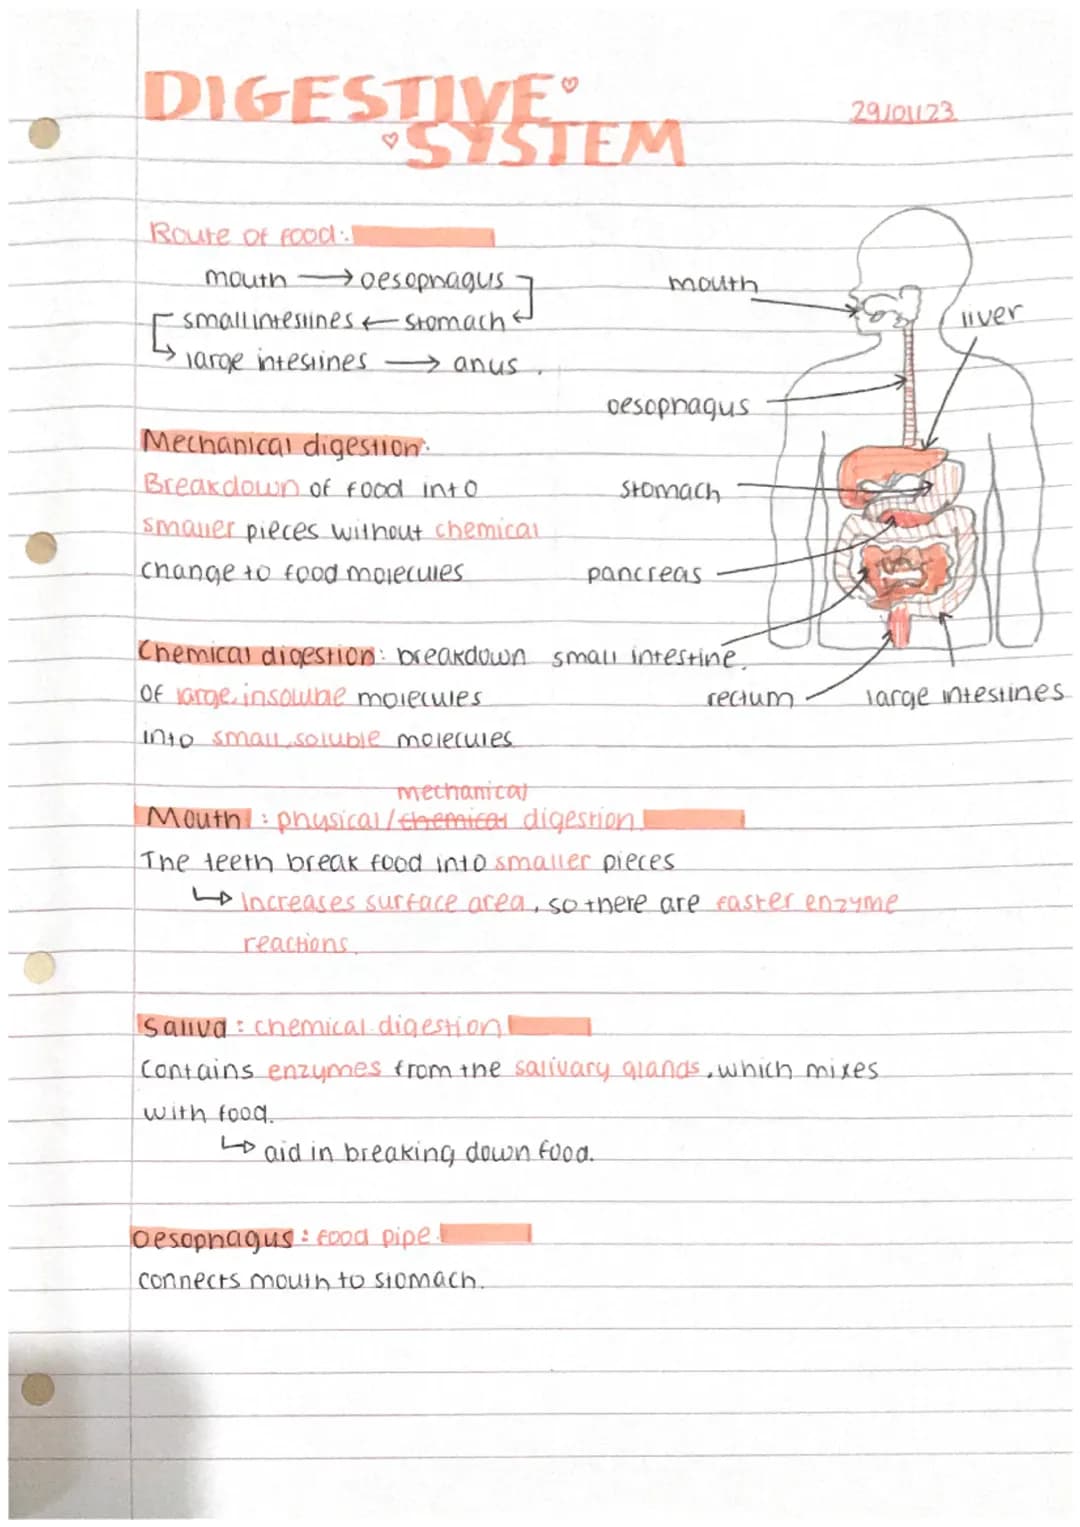 DIGESTIVE
SYSTEM
29/01/23
Route of food:
mouth → oesophagus
small intestines ← stomach
large intestines → anus.
mouth
liver
oesophagus
stomach
pancreas
small intestine.
rectum
large intestines
Mechanical digestion:
Breakdown of food into
smaller pieces without chemical
change to food molecules
Chemical digestion: breakdown
of large, insoluble molecules
into small, soluble molecules
mechanical
Mouth: physical/chemical digestion
The teeth break food into smaller pieces
↳ Increases surface area, so there are faster enzyme
reactions.
Saliva: chemical digestion
Contains enzymes from the salivary glands, which mixes
with food.
↳ aid in breaking down food.
Oesophagus: food pipe.
connects mouth to stomach.